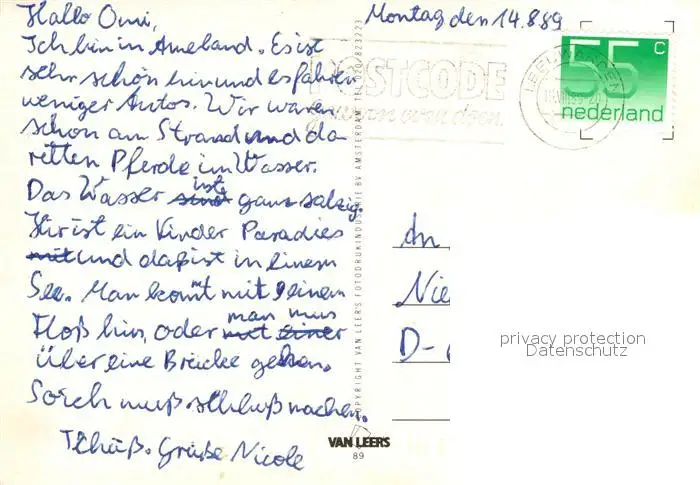 Hallo Omi,
Montag den 14.8.89
Ich bin in Ameland. Es ist
sehr schön hir und es fahren
weniger Autos. Wir waren
schon am Strand und da
reiten Pferde im Wasser.
Das Wasser ist ganz salzig.
Hir ist ein Kinder Paradies
und daß ist in einem
See. Man kommt mit einem
Floß hin, oder man mus
über eine Brücke gehen.
Sorch muß schluß machen.
Tchüß. Grüße Nicole
POSTCODE
LEEUWARDEN
55 c
nederland
An
D-
privacy protection
Datenschutz
COPYRIGHT VAN LEER'S FOTODRUKINDUSTRIE BV AMSTERDAM TEL 020-823223
VAN LEERS
89